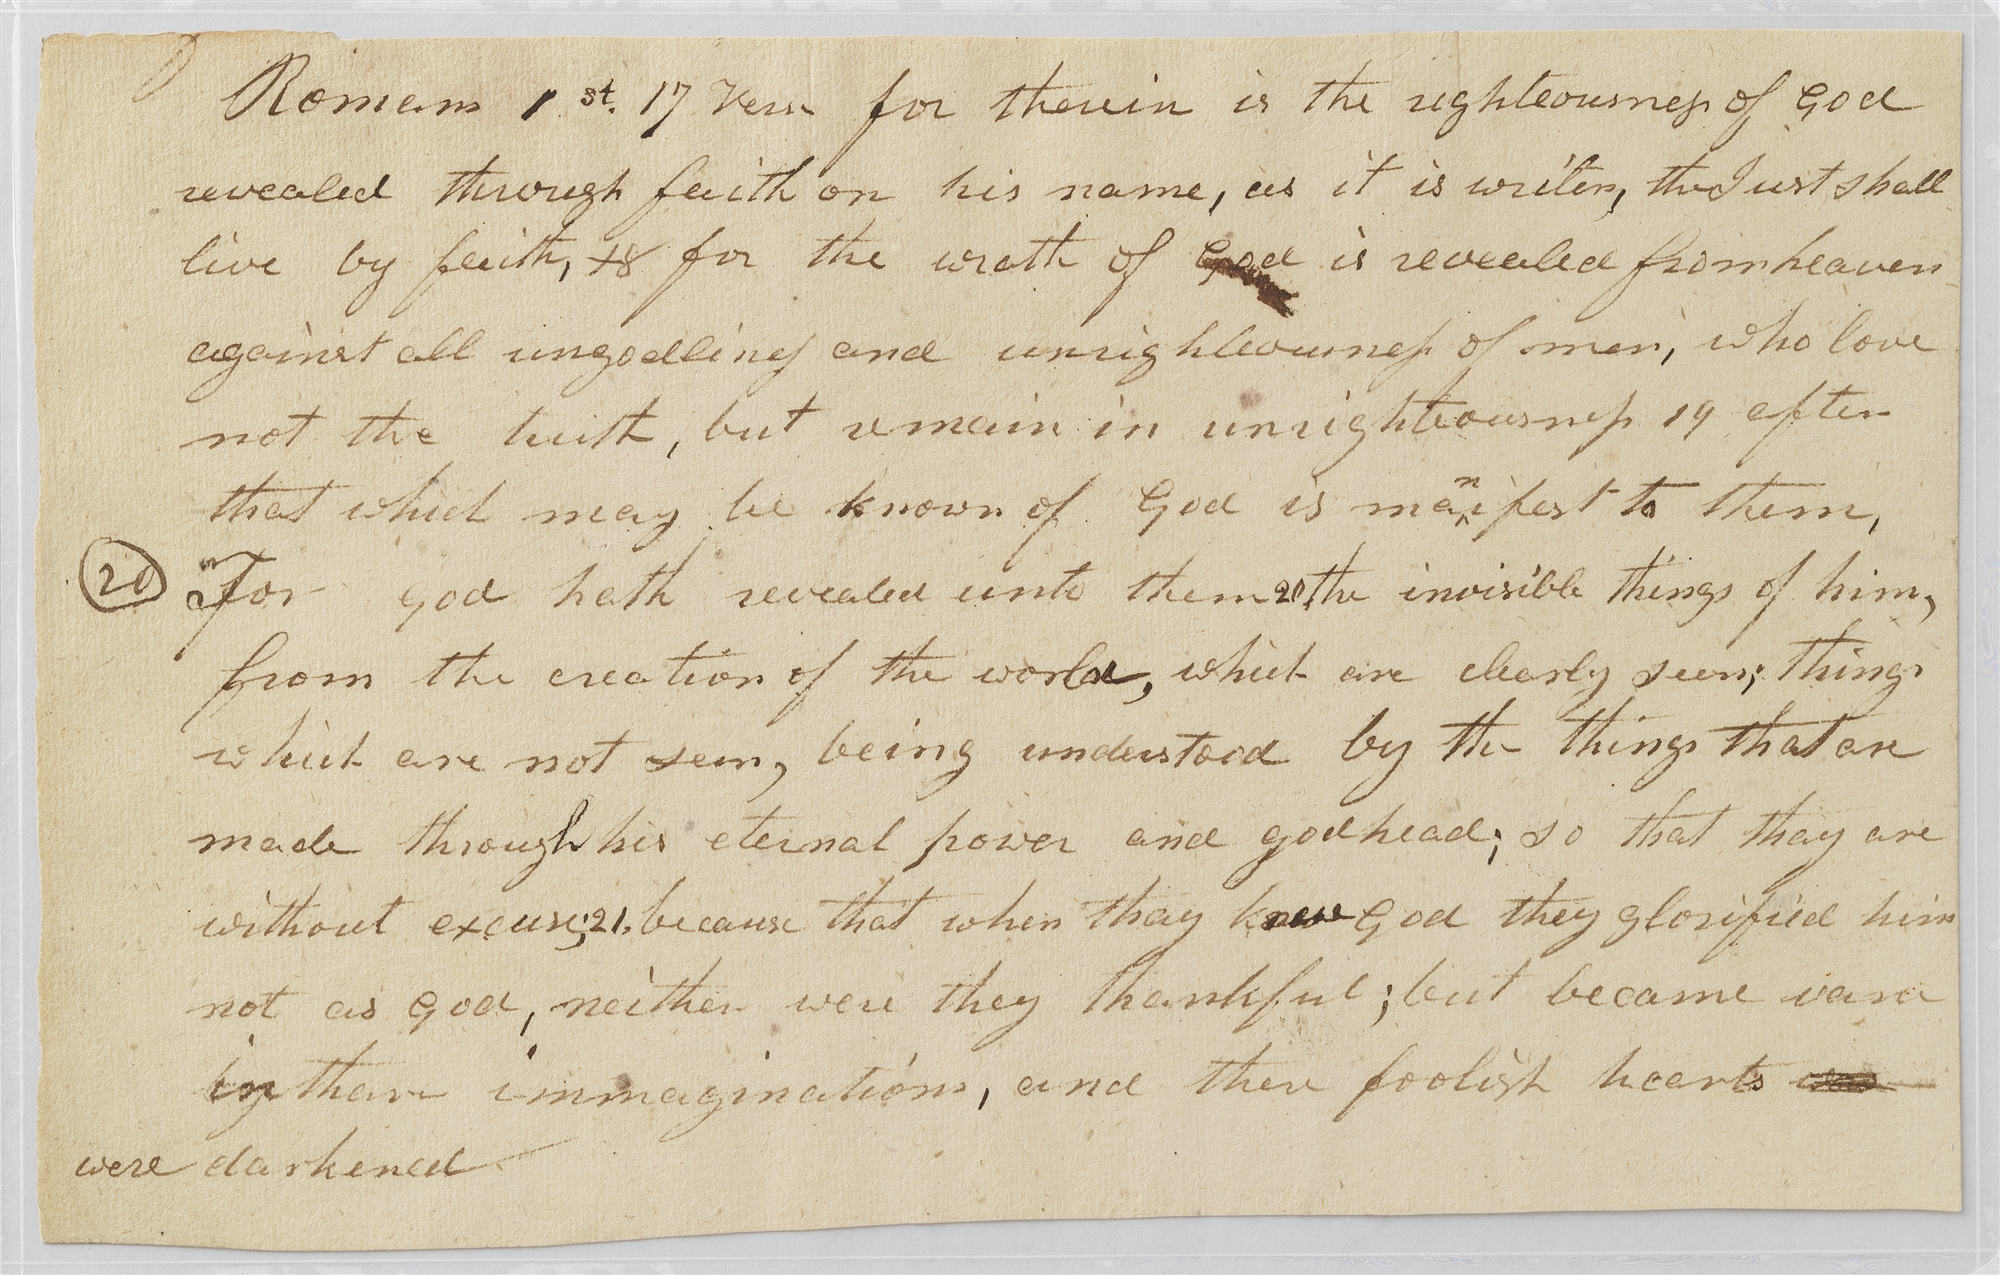 Romans 1 st. 17 Verse for therein is the righteousness of God
revealed through faith on his name, as it is writen, the Just shall
live by faith, 18 for the wrath of God is revealed from heaven
against all ungodliness and unrighteousness of men, who love
not the truth, but remain in unrighteousness 19 after
that which may be known of God is manifest to them,
20 For God hath revealed unto them 20 the invisible things of him,
from the creation of the world, which are clearly seen; things
which are not seen, being understood by the things that are
made through his eternal power and godhead; so that thay are
without excuse; 21. because that when thay knew God they glorified him
not as God, neither were they thankful; but became vain
in thare immaginations, and there foolish hearts was
were darkened